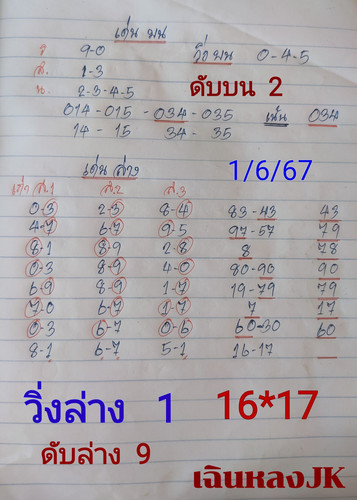 เด่น บน
ร 9-0 วิ่ง บน 0-4-5
ส. 1-3
น. 2-3-4-5 ดับบน 2
014-015-034-035 เน้น 034
14 - 15 34 - 35
เด่น ล่าง 1/6/67
ส.1 ส.2 ส.3
0-3 2-3 8-4 83-43 43
4-7 6-7 9-5 97-57 79
8-1 8-9 2-8 8 78
0-3 8-9 4-0 80-90 90
6-9 8-9 1-7 19-79 79
7-0 6-7 1-7 7 17
0-3 6-7 0-6 60-30 60
8-1 6-7 5-1 16-17
วิ่งล่าง 1 16*17
ดับล่าง 9
เฉินหลงJK